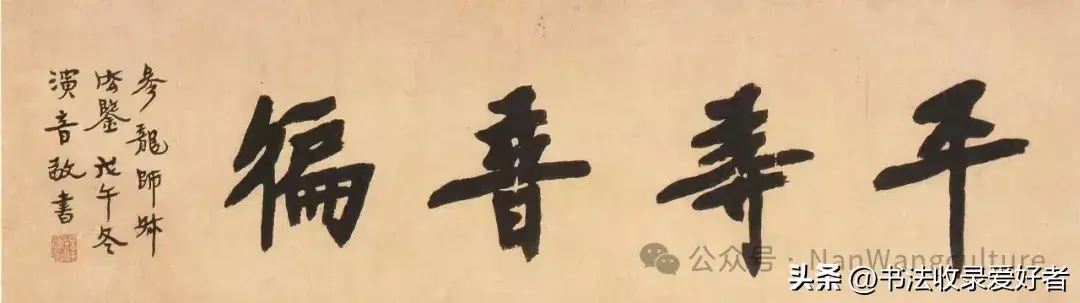 平等普徧
龍師
鑒 戊午冬
演音敬書
公众号 · NanWangculture
头条 @书法收录爱好者